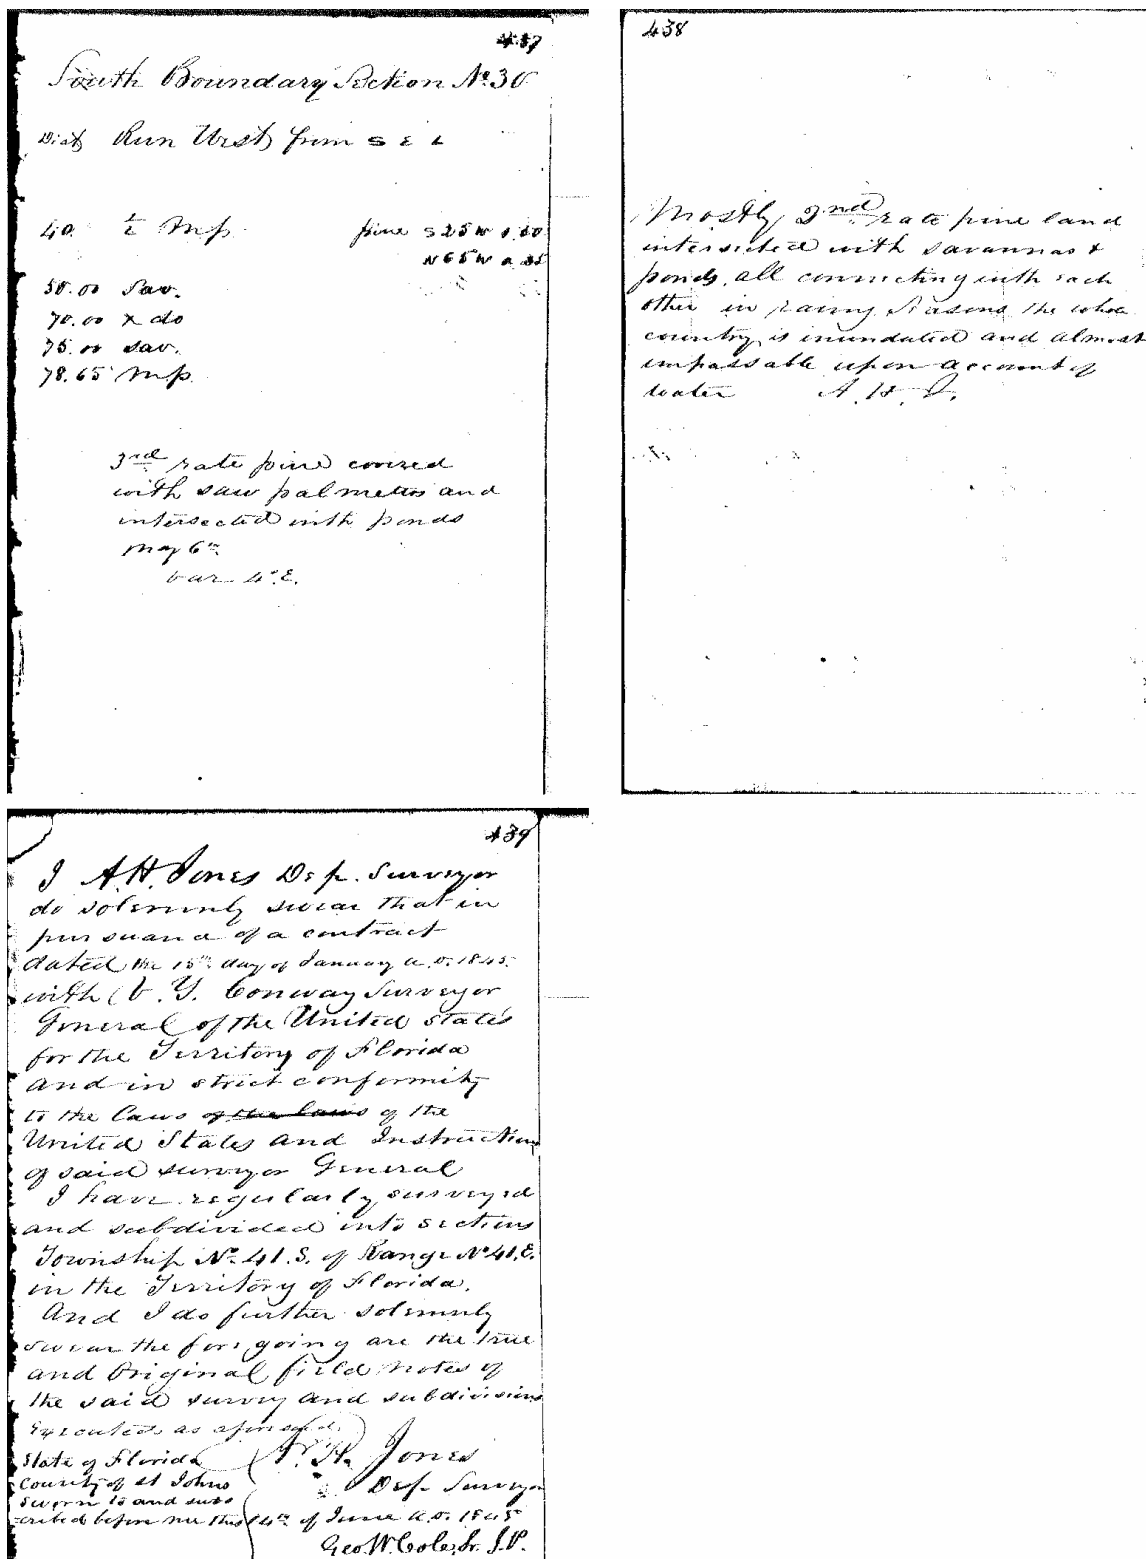 437
South Boundary Section No. 30
Dist Run West from S E c
40. ½ M p. pine S 25 W 0.50
N 65 W 0.35
50.00 Sav.
70.00 X do
75.00 Sav.
78.65 M p.
3rd rate pine covered
with saw palmetto and
intersected with ponds
May 6th
Var. 4° E.
438
Mostly 2nd rate pine land
intersected with savannas &
ponds, all connecting with each
other in rainy seasons the whole
country is inundated and almost
impassable upon account of
water A. H. J.
439
I A. H. Jones Dep. Surveyor
do solemnly swear that in
pursuance of a contract
dated the 15th day of January A.D. 1845.
with V. Y. Conway Surveyor
General of the United States
for the Territory of Florida
and in strict conformity
to the laws of the laws of the
United States and Instructions
of said surveyor General
I have regularly surveyed
and subdivided into sections
Township No. 41. S. of Range No 41. E.
in the Territory of Florida.
And I do further solemnly
swear the foregoing are the true
and Original field notes of
the said survey and subdivisions
executed as aforesaid.
State of Florida A. H. Jones
County of St Johns Dep. Surveyor
Sworn to and subs
cribed before me this 14th of June A.D. 1845
Geo. W. Cole, Sr. J. P.